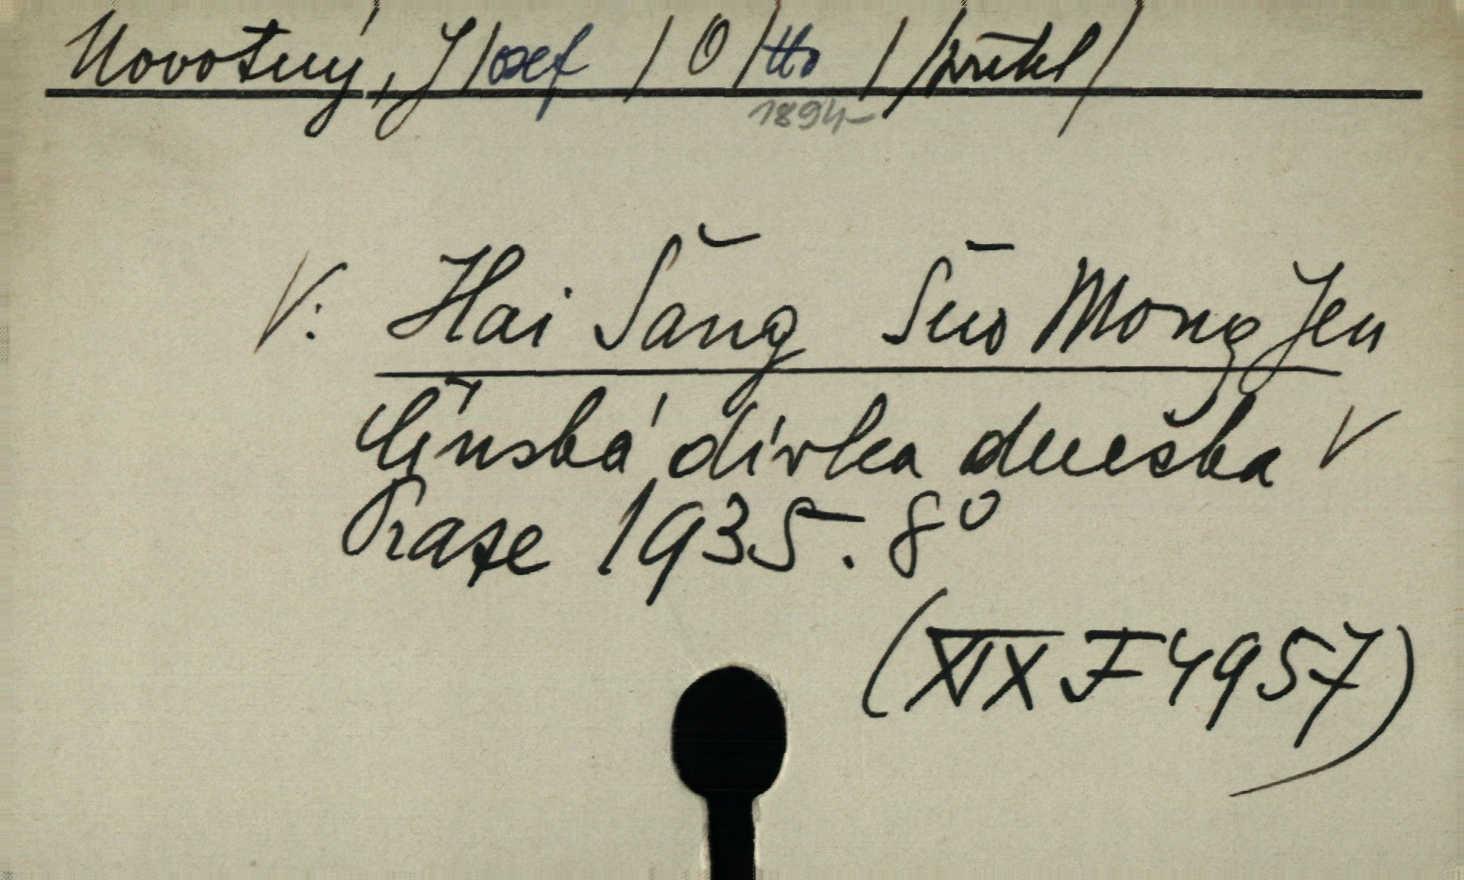 Novotný, J/osef / O/tto / /překl/
1894-
V: Hai Šang Sűo Mong Jen
Čínská dívka dneška V
Praze 1935. 8°
(XIX F 4957)